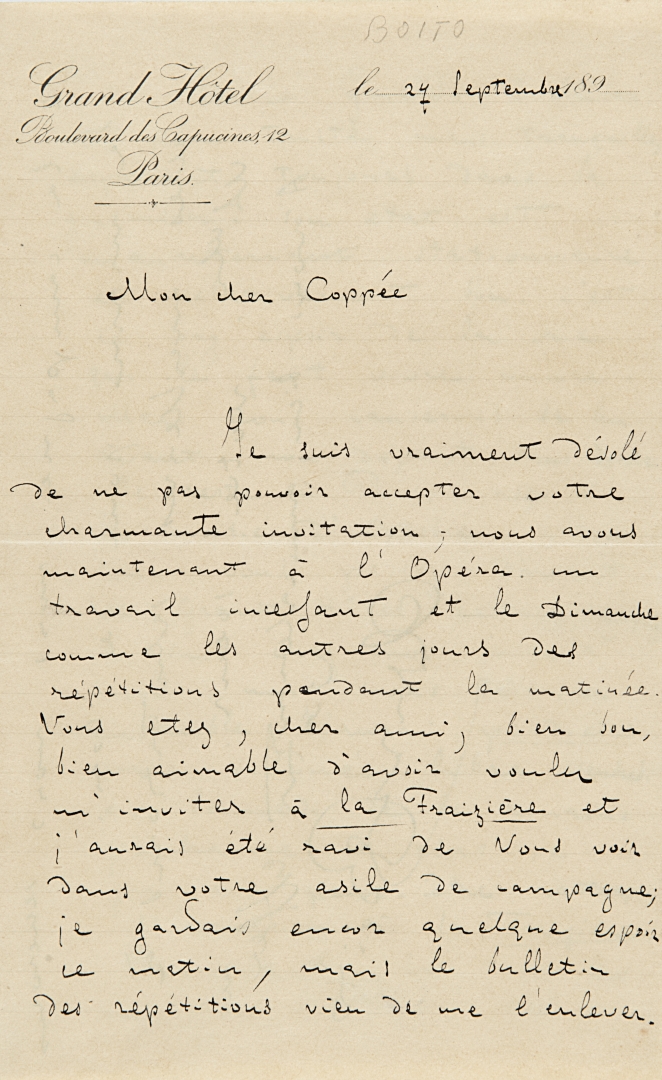 BOITO
Grand Hôtel
Boulevard des Capucines, 12
Paris.
le 27 Septembre 189
Mon cher Coppée
Je suis vraiment désolé
de ne pas pouvoir accepter votre
charmante invitation ; nous avons
maintenant à l'Opéra. un
travail incessant et le Dimanche
comme les autres jours des
répétitions pendant la matinée.
Vous etez, cher ami, bien bon,
bien aimable d'avoir voulu
m'inviter à la Fraizière et
j'aurais été ravi de Vous voir
dans votre asile de campagne;
je gardais encor quelque espoir
ce matin, mais le bulletin
des répétitions vien de me l'enlever.